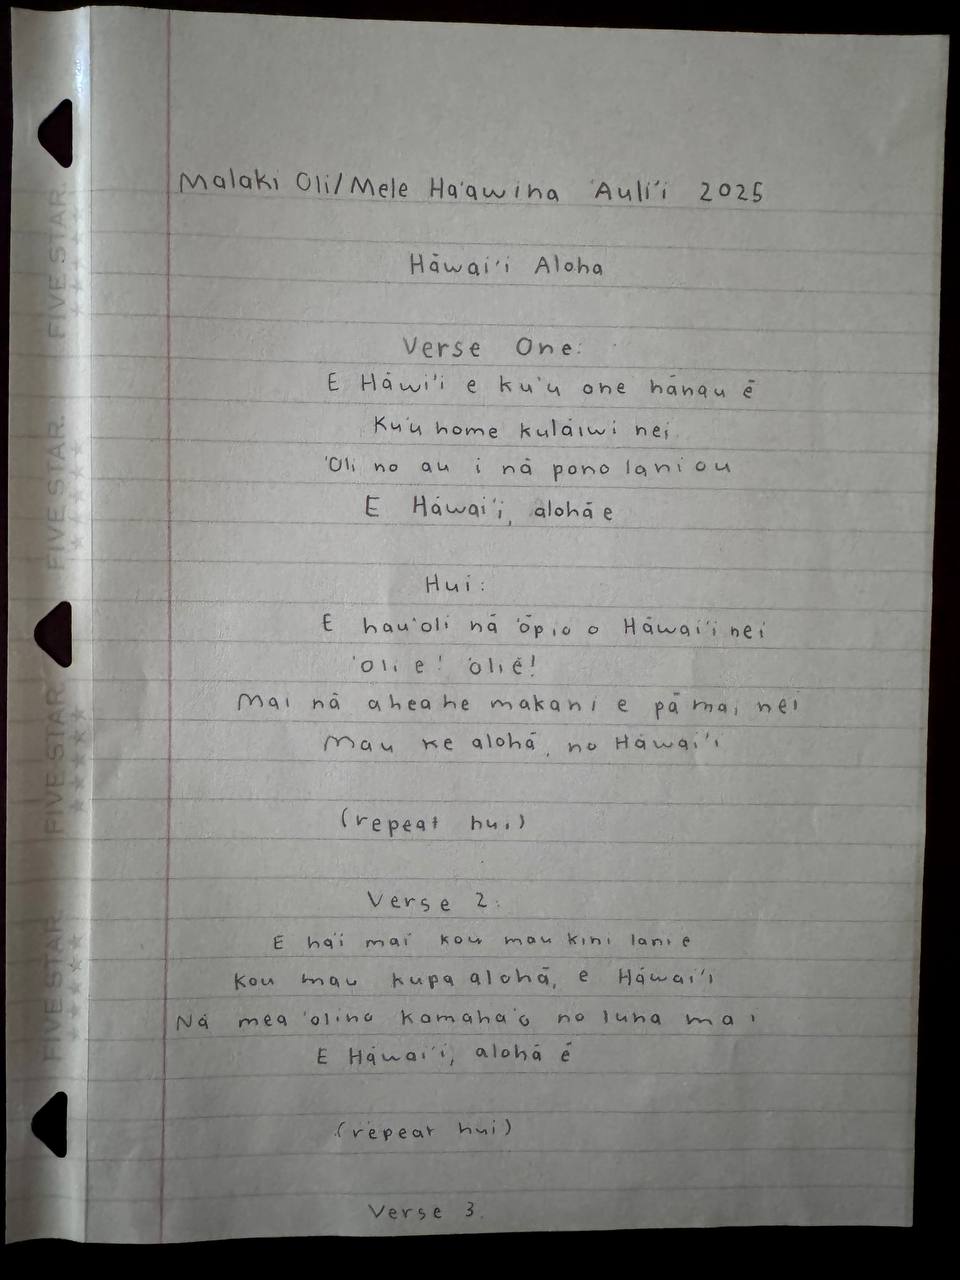 Malaki Oli/Mele Ha'awina 'Auli'i 2025
Hāwai'i Aloha
Verse One:
E Hāwi'i e ku'u one hānau ē
Ku'u home kulāiwi nei
'Oli no au i nā pono lani ou
E Hāwai'i, alohā e
Hui:
E hau'oli nā 'ōpio o Hāwai'i nei
'oli e! 'oli ē!
Mai nā aheahe makani e pā mai nei
Mau ke alohā, no Hāwai'i
(repeat hui)
Verse 2:
E ha'i mai kou mau kini lani e
Kou mau kupa alohā, e Hāwai'i
Nā mea 'olino kamaha'o no luna mai
E Hāwai'i, alohā ē
(repeat hui)
Verse 3.
FIVE STAR.
FIVE STAR.
FIVE STAR.
FIVE STAR.
FIVE STAR.